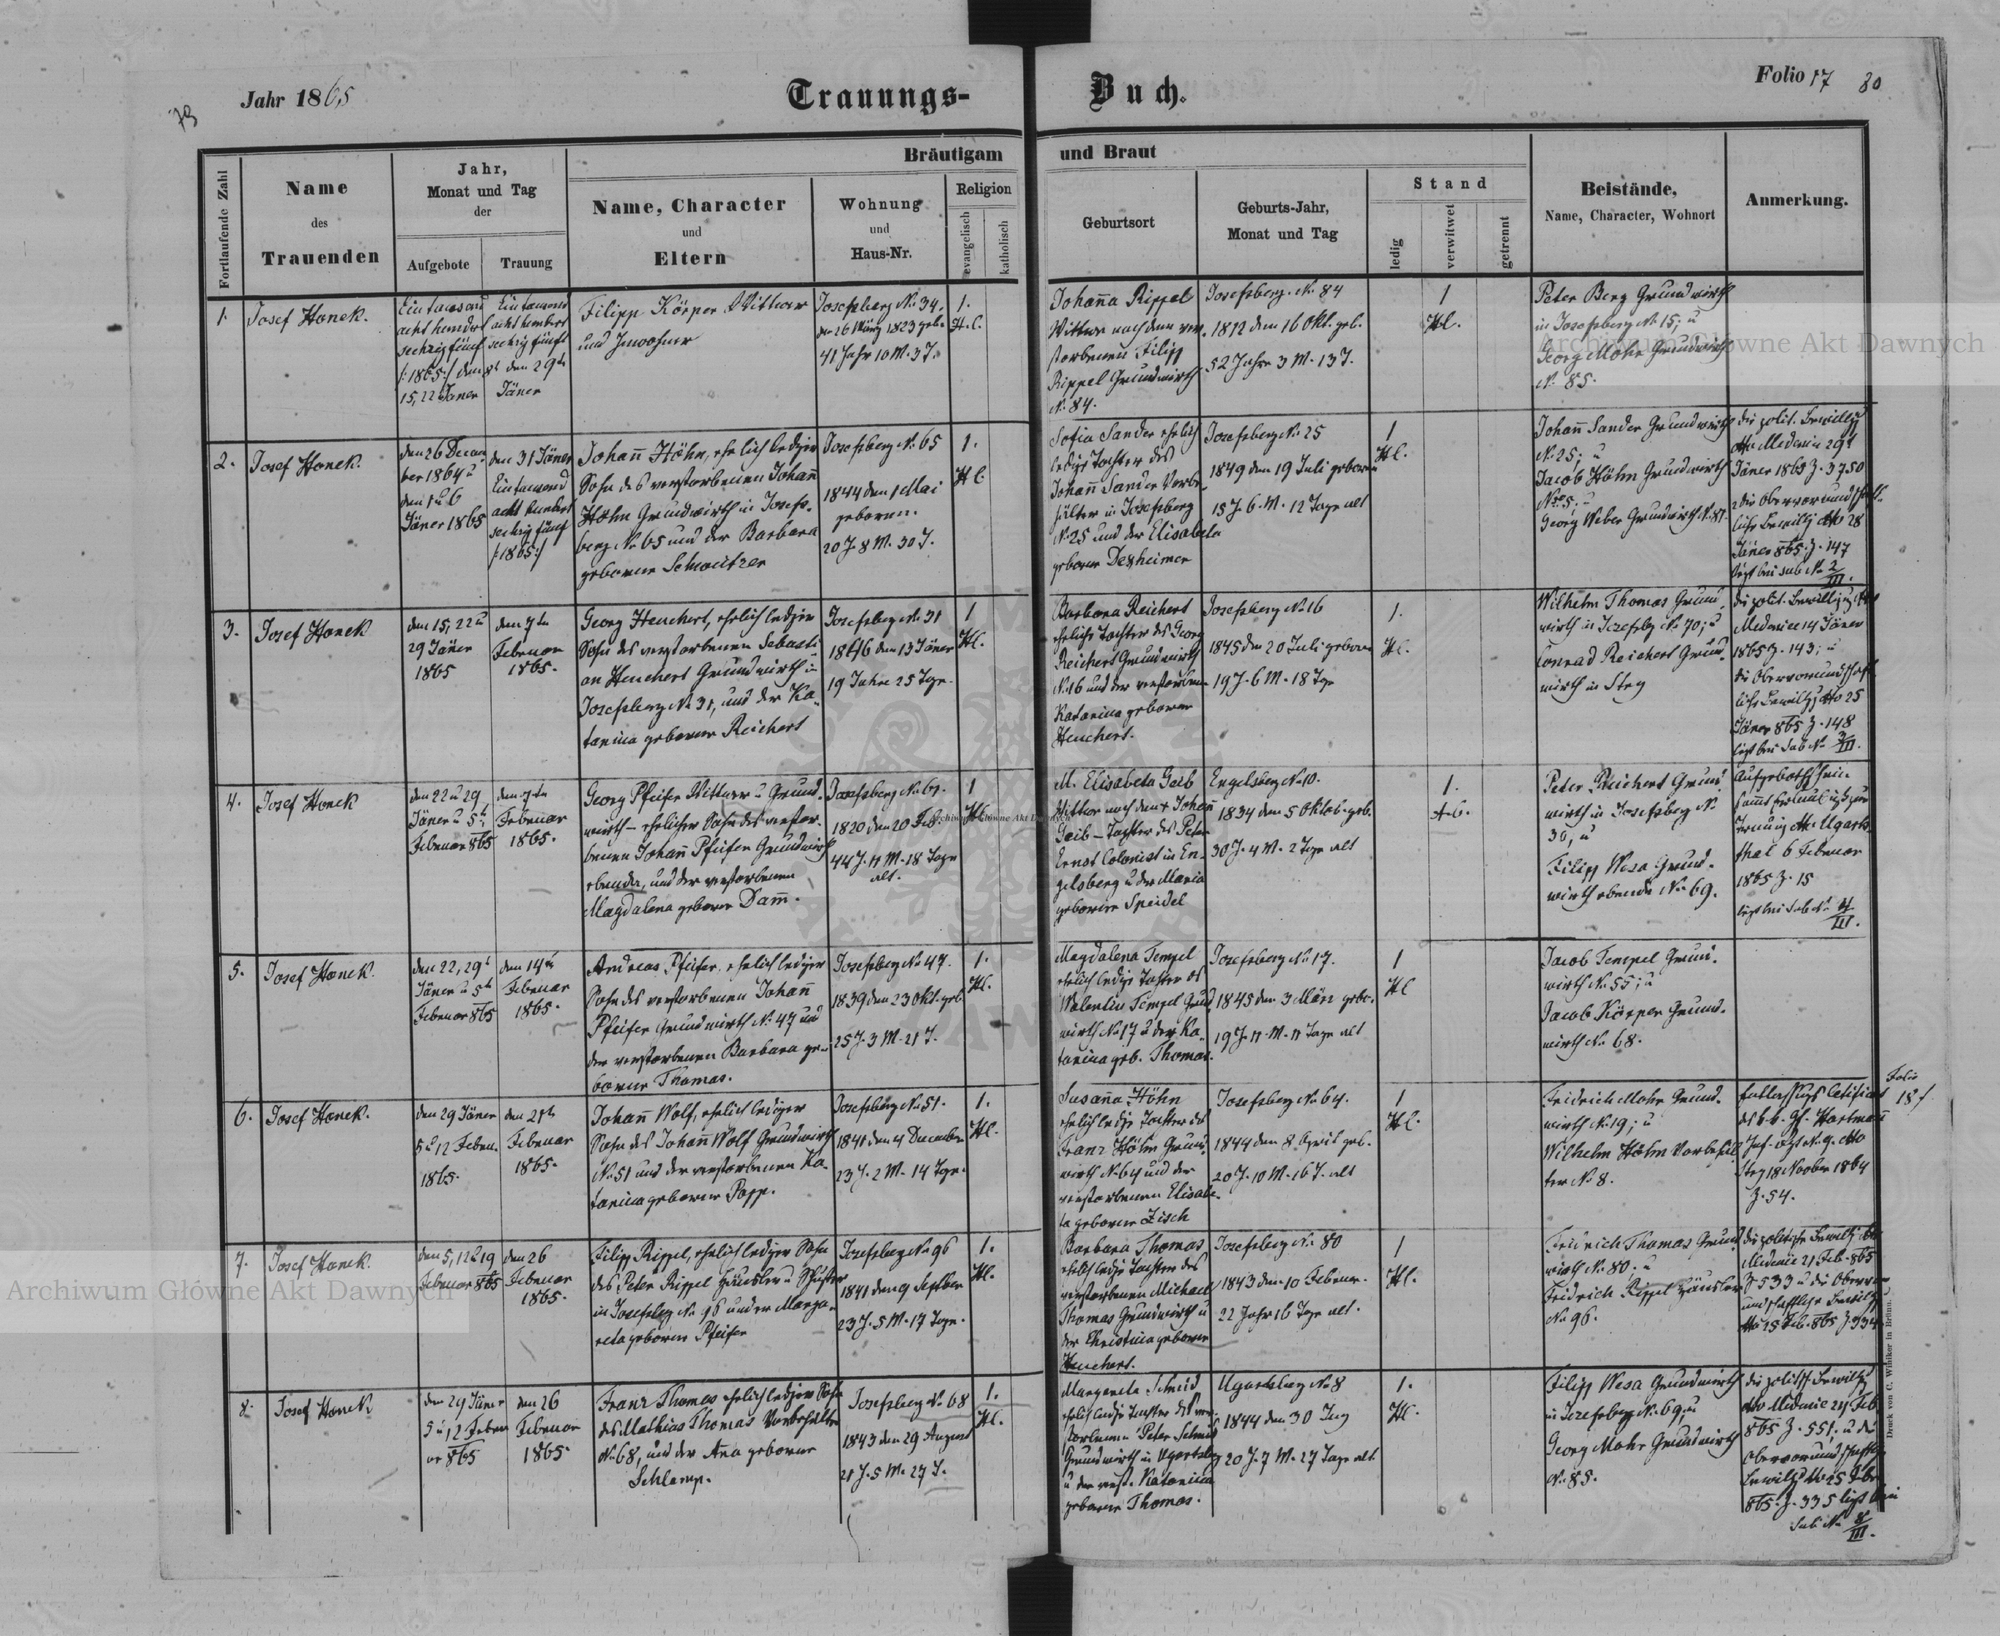 79
Jahr 1865
Trauungs-
Buch.
Folio 17
80
Fortlaufende Zahl
Name
des
Trauenden
Jahr,
Monat und Tag
der
Aufgebote
Trauung
Bräutigam
und Braut
Name, Character
und
Eltern
Wohnung
und
Haus-Nr.
Religion
evangelisch
katholisch
Geburtsort
Geburts-Jahr,
Monat und Tag
Stand
ledig
verwitwet
getrennt
Beistände,
Name, Character, Wohnort
Anmerkung.
1.
Josef Hanek.
Eintausend
acht hundert
sechzig fünf
/:1865:/ den 8t
15, 22 Jäner
Eintausend
acht hundert
sechzig fünf
den 29ten
Jäner
Filipp Körper Wittwer
und Inwohner
Josefsberg No 34.
den 26 März 1823 geb.
41 Jahr 10 M. 3 T.
1.
H.C.
Johanna Rippel
Wittwe nach dem ver-
storbenen Filipp
Rippel Grundwirth
No 84.
Josefsberg. No 84
1812 den 16 Okt. geb.
52 Jahre 3 M. 13 T.
1
H.C.
Peter Berg Grundwirth
in Josefsberg No 15; u
Georg Mohr Grundwirth
No 85.
2.
Josef Hanek.
den 26 Decem-
ber 1864 u
den 1 u 6
Jäner 1865
den 31 Jäner
Eintausend
acht hundert
sechzig fünf
/:1865:/
Johann Höhn, ehelich lediger
Sohn des verstorbenen Johann
Höhn Grundwirth in Josefs-
berg No 65 und der Barbara
geborene Schweitzer
Josefsberg No 65
1844 den 1 Mai
geboren.
20 J. 8 M. 30 T.
1.
H.C.
Sofia Sander ehelich
ledige Tochter des
Johann Sander Vorbe-
hälter in Josefsberg
No 25 und der Elisabeta
geborene Dexheimer
Josefsberg No 25
1849 den 19 Juli geboren
15 J. 6. M. 12 Tage alt
1
H.C.
Johann Sander Grundwirth
No 25; u
Jacob Höhn Grundwirth
No 5; u
Georg Weber Grundwirth No 87.
die polit. Bewillig
dto Medenice 29t
Jäner 1865 Z. 3750
u die Obervormundschaft-
liche Bewillg dto 28
Jäner 865 Z. 147
liegt bei sub No 2/III.
3.
Josef Hanek
den 15, 22 u
29 Jäner
1865
den 7ten
Februar
1865.
Georg Heuchert, ehelich lediger
Sohn des verstorbenen Sebasti-
an Heuchert Grundwirth in
Josefsberg No 31, und der Ka-
tarina geborene Reichert
Josefsberg No 31
1846 den 13 Jäner
19 Jahre 25 Tge.
1
H.C.
Barbara Reichert
eheliche Tochter des Georg
Reichert Grundwirth
No 16 und der verstorbenen
Katarina geborene
Heuchert.
Josefsberg No 16
1845 den 20 Juli geboren
19 J. 6 M. 18 Tge
1.
H.C.
Wilhelm Thomas Grund-
wirth in Josefsbg No 70; u
Conrad Reichert Grund-
wirth in Stry
die polit. Bewillig dto
Medenice 14 Jäner
1865 Z. 143; u
die Obervormundschaft-
liche Bewillg dto 25
Jäner 865 Z. 148
liegt bei sub No 3/III.
4.
Josef Hanek
den 22 u 29
Jäner u 5t
Februar 865
den 7ten
Februar
1865.
Georg Pfeifer Wittwer u Grund-
wirth – ehelicher Sohn des verstor-
benen Johann Pfeifer Grundwirth
ebenda, und der verstorbenen
Magdalena geborene Damm.
Josefsberg No 67.
1820 den 20 Feb.
44 J. 11 M. 18 Tage
alt.
1
H.C.
M. Elisabeta Geib
Wittwe nach dem † Johann
Geib – Tochter des Peter
Ernst Colonist in En-
gelsberg u der Maria
geborene Speidel
Engelsberg No 10.
1834 den 5 Oktob. geb.
30 J. 4 M. 2 Tge alt
1.
A.C.
Peter Reichert Grund-
wirth in Josefsberg No
39, u
Filipp Wesa Grund-
wirth ebenda No 69.
Aufgebothsschein
Trauung dto Ugarts-
thal 6 Februar
1865 Z. 15
liegt bei sub No 4/III.
5.
Josef Hanek.
den 22, 29t
Jäner u 5t
Februar 865
den 14ten
Februar
1865.
Andreas Pfeifer, ehelich lediger
Sohn des verstorbenen Johann
Pfeifer Grundwirth No 47 und
der verstorbenen Barbara ge-
borene Thomas.
Josefsberg No 47.
1839 den 23 Okt. geb
25 J. 3 M. 21 T.
1.
H.C.
Magdalena Tempel
ehelich ledige Tochter des
Walentin Tempel Grund-
wirth No 17 u der Ka-
tarina geb. Thomas.
Josefsberg No 17.
1845 den 3 März gebo.
19 J. 11 M. 11 Tage alt
1
H.C
Jacob Tempel Grund-
wirth No 55; u
Jacob Körper Grund-
wirth No 68.
6.
Josef Hanek.
den 29 Jäner
5 u 12 Febru.
1865.
den 21ten
Februar
1865.
Johann Wolf, ehelich lediger
Sohn des Johann Wolf Grundwirth
No 51 und der verstorbenen Ka-
tarina geborene Popp.
Josefsberg No 51.
1841 den 4 December
23 J. 2 M. 14 Tge.
1.
H.C.
Susanna Höhn
ehelich ledige Tochter des
Franz Höhn Grund-
wirth No 64 und der
verstorbenen Elisabe-
ta geborene Zisch
Josefsberg No 64.
1844 den 8 April geb.
20 J. 10 M. 16 T. alt
1
H.C.
Fridrich Mohr Grund-
wirth No 19; u
Wilhelm Höhn Vorbehäl-
ter No 8.
Entlassungs Certificat
des k. k. Gf. Hartmann
Inf. Rgt No 9. dto
Stry 18 November 1864
Z. 54.
Folio
18/
7.
Josef Hanek.
den 5, 12 u 19
Februar 865
den 26
Februar
1865.
Filipp Rippel, ehelich lediger Sohn
des Peter Rippel Häusler u Schuster
in Josefsbg No 96 und der Marga-
reta geborene Pfeifer
Josefsberg No 96
1841 den 9 September
23 J. 5 M. 17 Tge.
1.
H.C.
Barbara Thomas
ehelich ledige Tochter des
verstorbenen Michael
Thomas Grundwirth u
der Christina geborene
Heuchert.
Josefsberg No 80
1843 den 10 Februar.
22 Jahr 16 Tage alt.
1
H.C.
Fridrich Thomas Grund-
wirth No 80. u
Fridrich Rippel Häusler
No 96.
die politische Bewillig dto
Medenice 21 Feb. 865
Z 533 u die Obervor-
mundschaftliche Bewillg
dto 25 Feb. 865 Z. 334
8.
Josef Hanek
den 29 Jäner
5 u 12 Febru-
ar 865
den 26
Februar
1865.
Franz Thomas ehelich lediger Sohn
des Mathias Thomas Vorbehälter
No 68, und der Ana geborene
Schlamp.
Josefsberg No 68
1843 den 29 August
21 J. 5 M. 27 T.
1.
H.C.
Margareta Schmid
ehelich ledige Tochter des ver-
storbenen Peter Schmid
Grundwirth in Ugartsberg
u der verst. Katarina
geborene Thomas.
Ugartsberg No 8
1844 den 30 Juny
20 J. 7 M. 27 Tage alt
1.
H.C.
Filipp Wesa Grundwirth
in Josefsberg No 69, u
Georg Mohr Grundwirth
No 85.
die politische Bewillg
dto Medenice 24 Feb.
865 Z. 551; u die
Obervormundschaftl.
Bewillg dto 25 Febr
865. Z. 335 liegt bei
sub No 8/III.
Druck von C. Winiker in Brünn.
Archiwum Główne Akt Dawnych
Archiwum Główne Akt Dawnych
Archiwum Główne Akt Dawnych